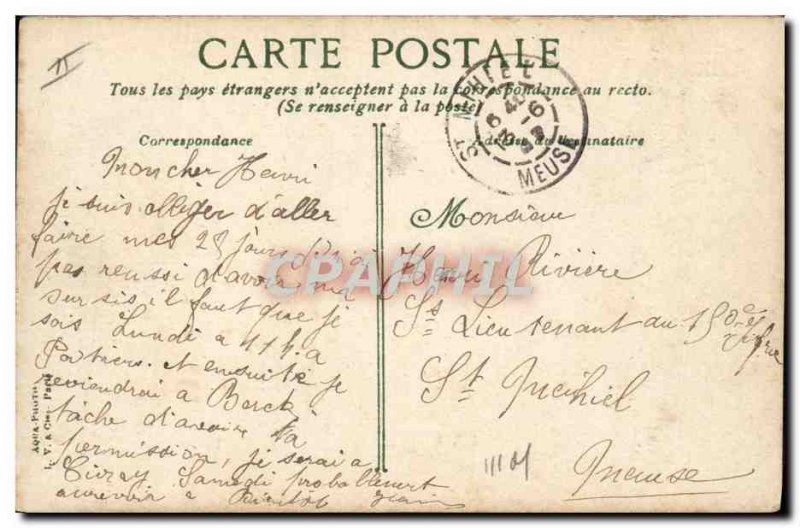 II
CARTE POSTALE
Tous les pays étrangers n'acceptent pas la correspondance au recto.
(Se renseigner à la poste)
ST MIHIEL
MEUSE
Correspondance
Adresse du Destinataire
Mon cher Henri
je suis obliger d'aller
faire mes 28 jours
pas reussi d'avoir
sursis, il faut que je
sois Lundi a 11h. a
Poitiers. et ensuite je
reviendrai a Berck
tâche d'avoir ta
permission, je serai a
Civray Samedi probablement
au revoir a Bientot
Monsieur
Henri Rivière
Ss Lieutenant au 150e
St Meihiel
Meuse
AQUA-PHOTO
L. V. & Cie Paris
CPAPHIL